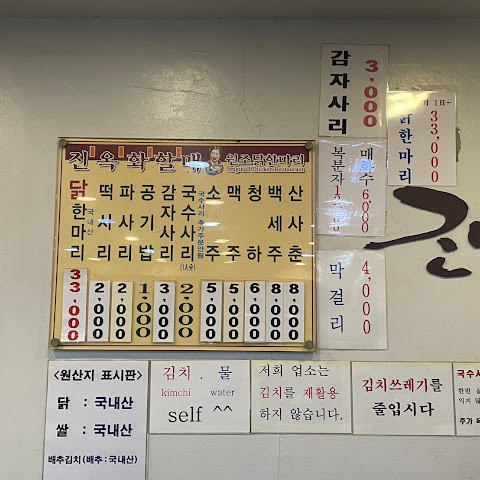 진옥화할매 원조닭한마리
Original Chicken Restaurant
닭한마리 국내산 33,000
떡사리 2,000
파사리 2,000
공기밥 1,000
감자사리 3,000
국수사리 2,000
소주 5,000
맥주 5,000
청하 6,000
백세주 8,000
산사춘 8,000
감자사리 3,000
1일~
닭한마리 33,000
매화수 6,000
복분자
막걸리 4,000
<원산지 표시판>
닭 : 국내산
쌀 : 국내산
배추김치(배추:국내산)
김치 . 물
kimchi water
self ^^
저희 업소는
김치를 재활용
하지 않습니다.
김치쓰레기를
줄입시다
국수사